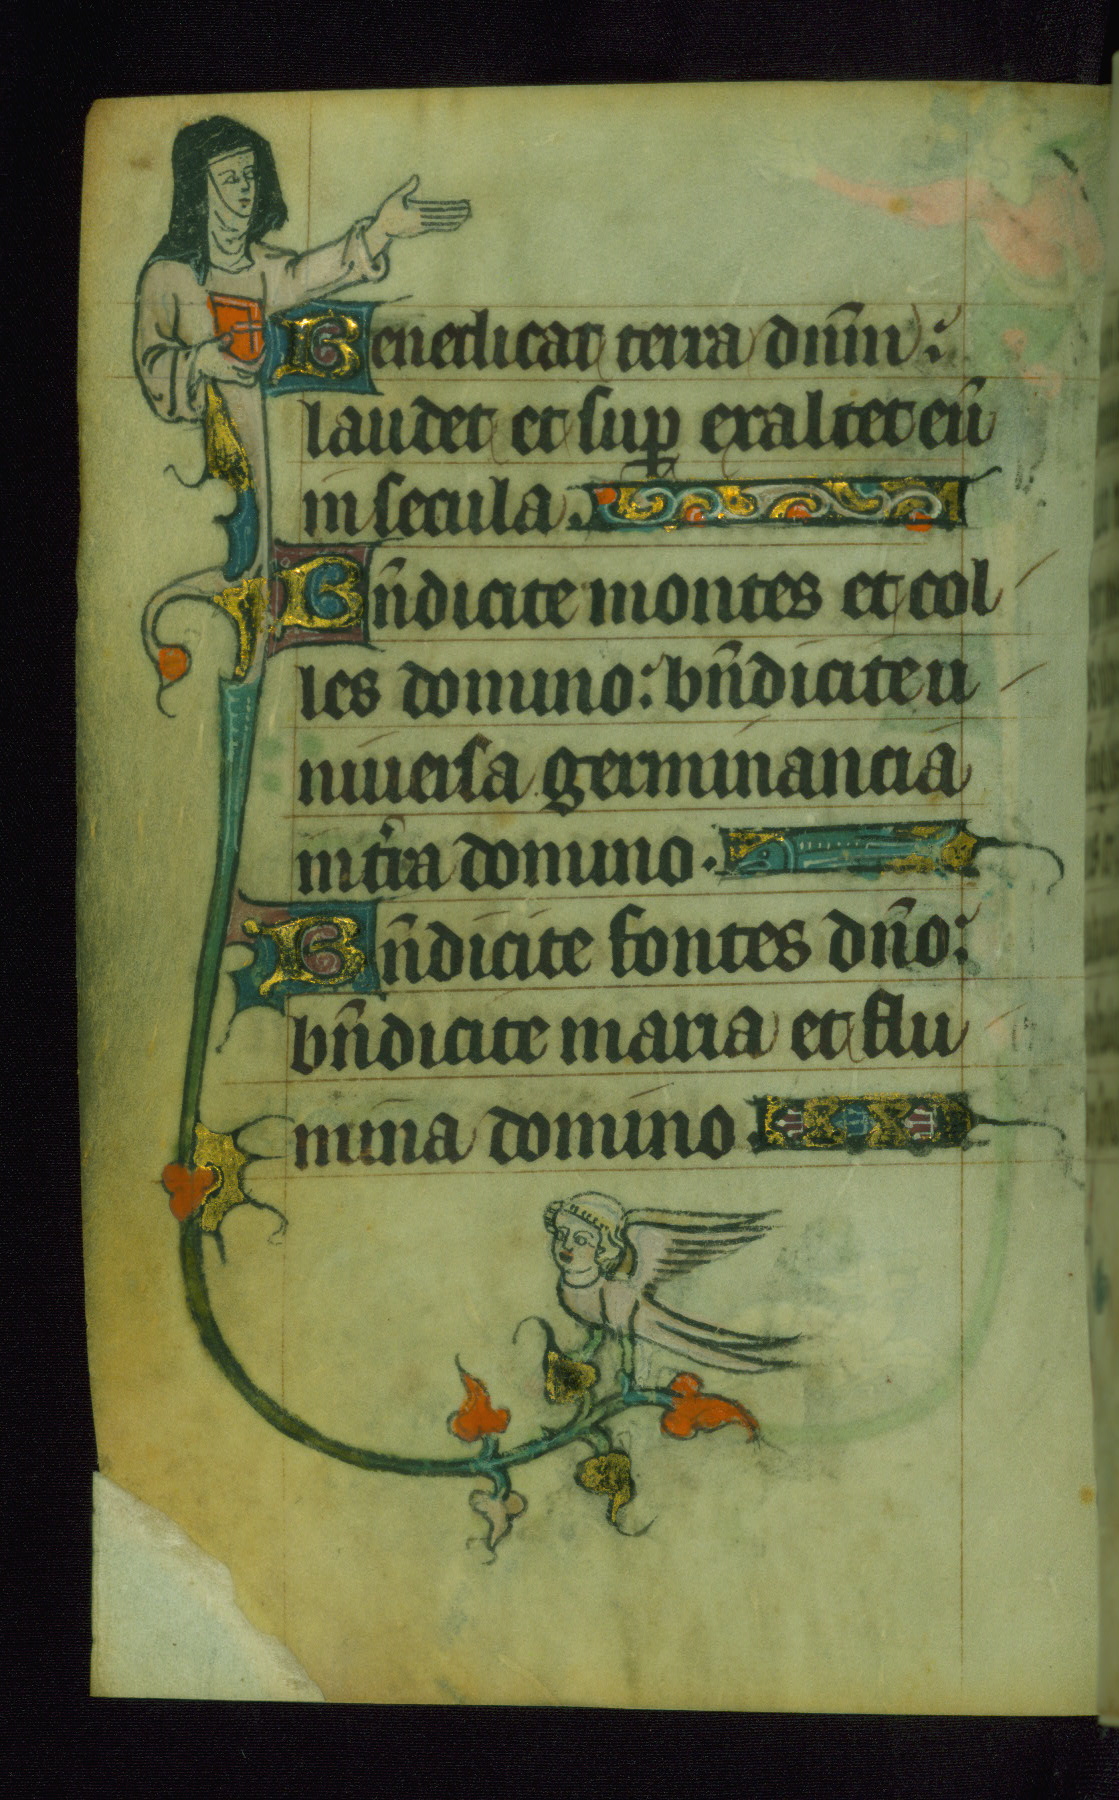 Benedicat terra dn̄m:
laudet et suꝑ exaltet eū
in secula.
Bn̄dicite montes et col
les domino: bn̄dicite u
niuersa germinancia
in t̾ra domino.
Bn̄dicite fontes dn̄o:
bn̄dicite maria et flu
mina domino.